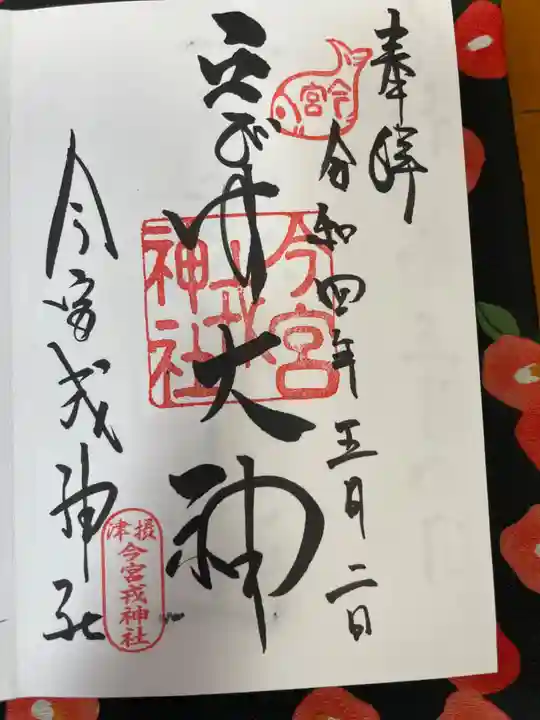 奉拝
今宮
令和四年五月二日
大神
今宮戎神社
今宮戎神社
摂津
今宮戎神社